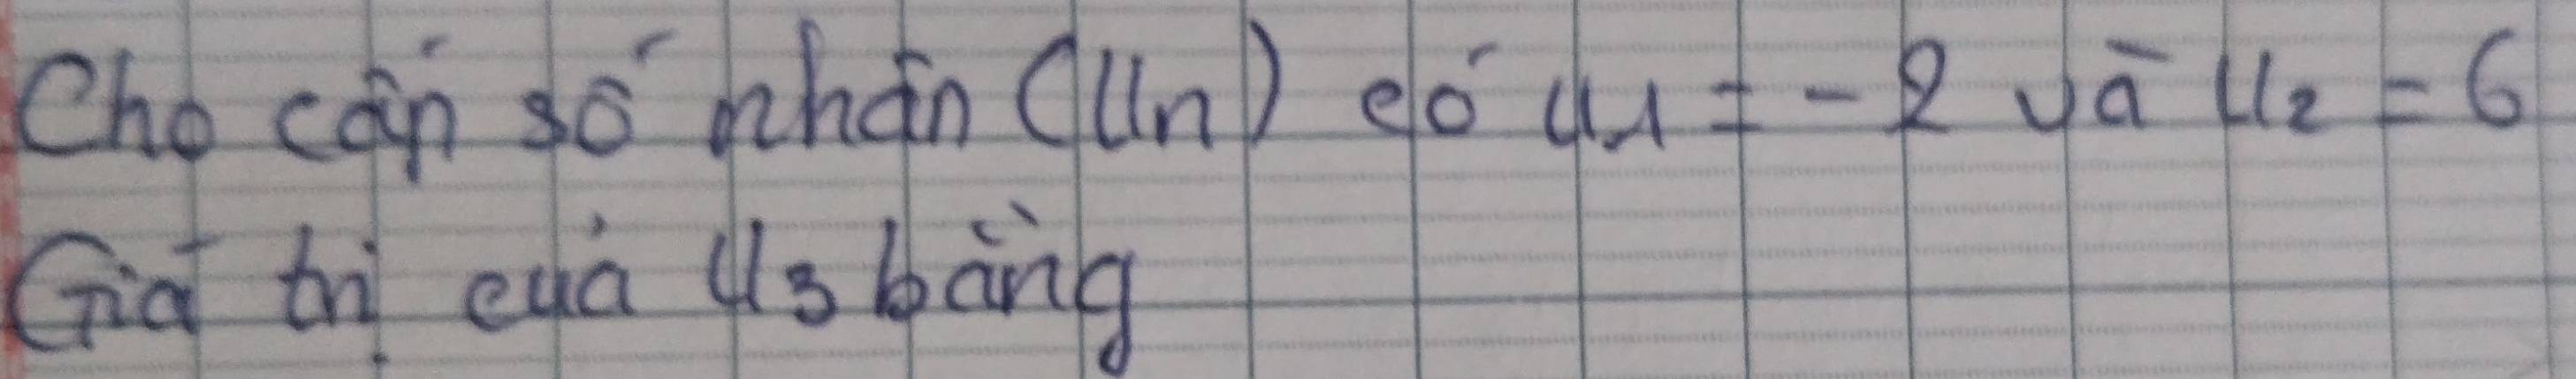 Cho cấp số nhân (Un) có U1 = -2 và U2 = 6
Giá trị của U3 bằng